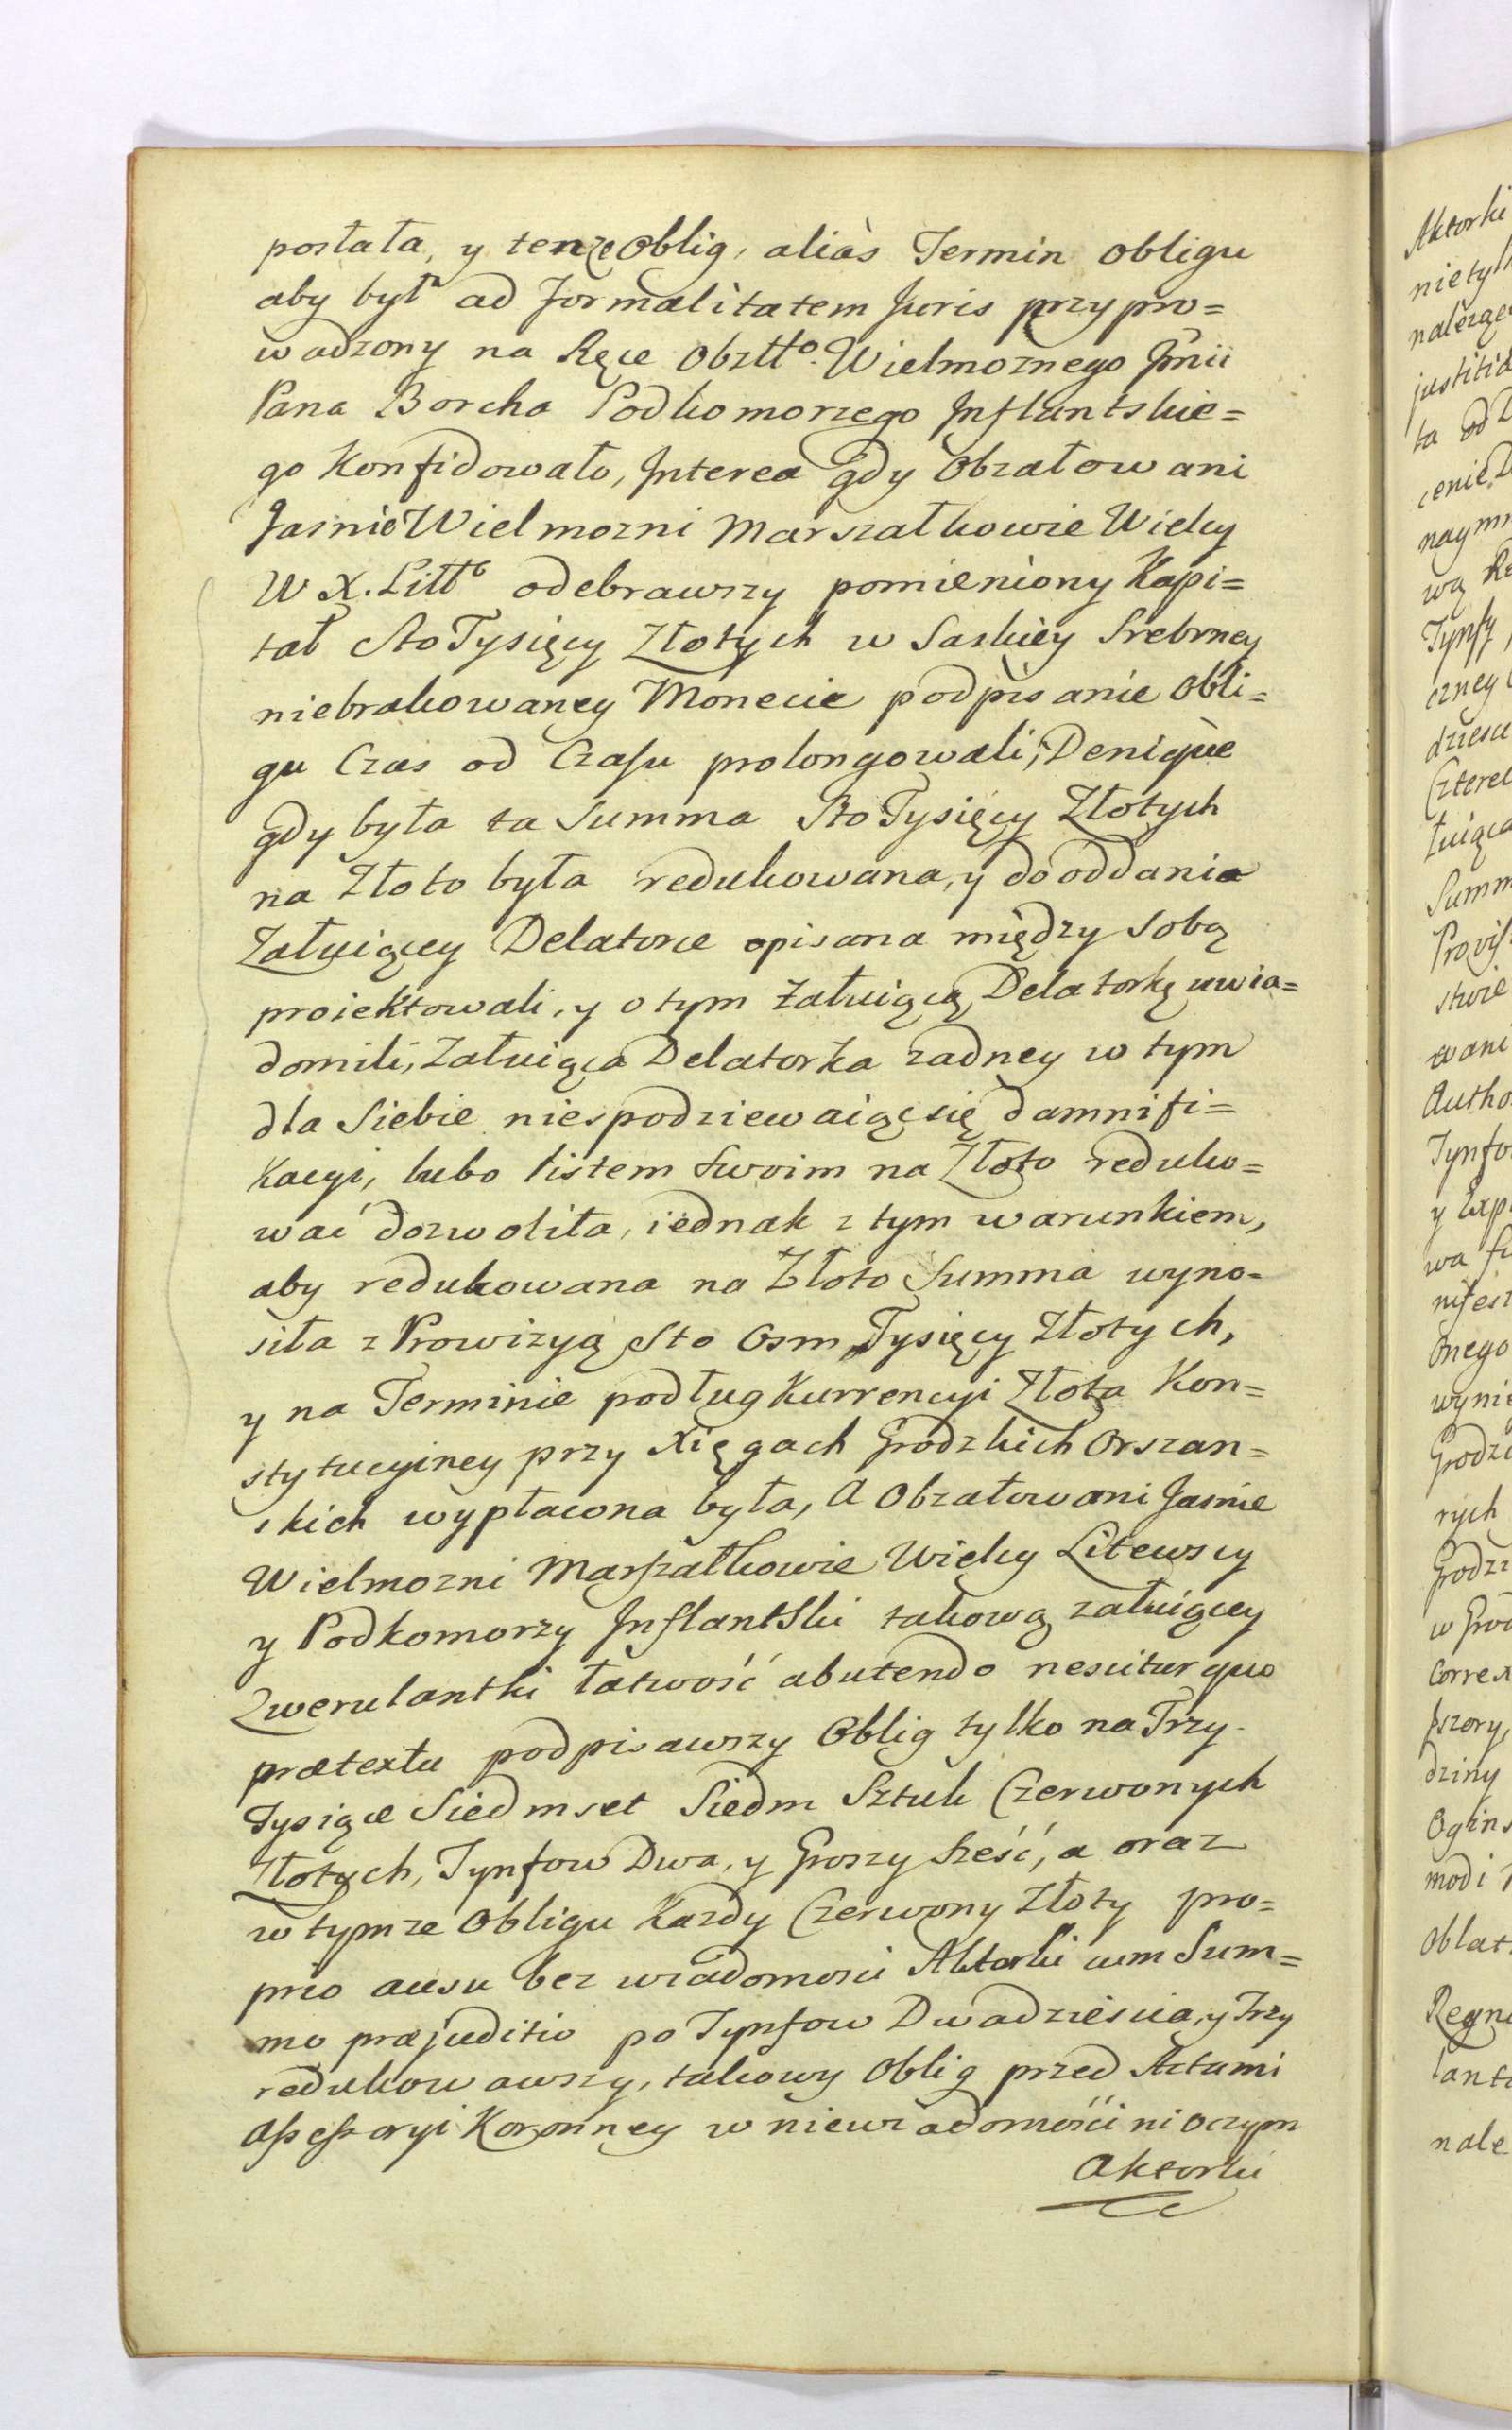 posłała, y tenze Oblig, aliàs Termin obligu
aby był ad formalitatem Juris przypro=
wadzony na Ręce Obżłło. Wielmoznego Jmći
Pana Borcha Podkomorzego Inflantskie=
go Konfidowało, Interea gdy Obzałowani
JasnieWielmozni Marszałkowie Wielcy
W X. Litto odebrawszy pomieniony Kapi=
tał Sto Tysięcy Złotych w Saskiey Srebrney
niebrakowaney Monecie podpisanie Obli=
gu Czas od Czasu prolongowali, Denique
gdy była ta Summa Sto Tysięcy Złotych
na Złoto była redukowana, y do oddania
Załuiącey Delatorce opisana między sobą
proiektowali, y o tym załuiącą Delatorkę uwia=
domili, Załuiąca Delatorka zadney w tym
dla Siebie niespodziewaiąc się damnifi=
kacyi, lubo listem swoim na Złoto reduko=
wać dozwoliła, iednak z tym warunkiem,
aby redukowana na Złoto Summa wyno=
siła z Prowizyą Sto Osm Tysięcy Złotych,
y na Terminie podług Kurrencyi Złota Kon=
stytucyiney przy Xięgach Grodzkich Orszan=
skich wypłacona była, A Obzałowani Jasnie
Wielmozni Marszałkowie Wielcy Litewscy
y Podkomorzy Inflantski takową załuiącey
Qwerulantki łatwość abutendo nescitur quo
prætextu podpisawszy Oblig tylko na Trzy
Tysiące Siedmset Siedm Sztuk Czerwonych
Złotych, Tynfow Dwa, y Groszy Sześć, a oraz
w tymze Obligu Kazdy Czerwony Złoty pro=
prio ausu bez wiadomosci Aktorki cum Sum=
mo præjuditio po Tynfow Dwadziescia, y Trzy
redukowawszy, takowy Oblig przed Actami
Assessoryi Koronney w niewiadomości ni oczym
Aktorki